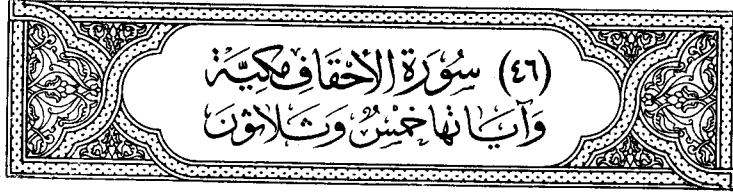 (٤٦) سُورَة الأحْقاف مَكيَّة
وَآيَاتها خَمْسٌ وَثَلَاثُونَ